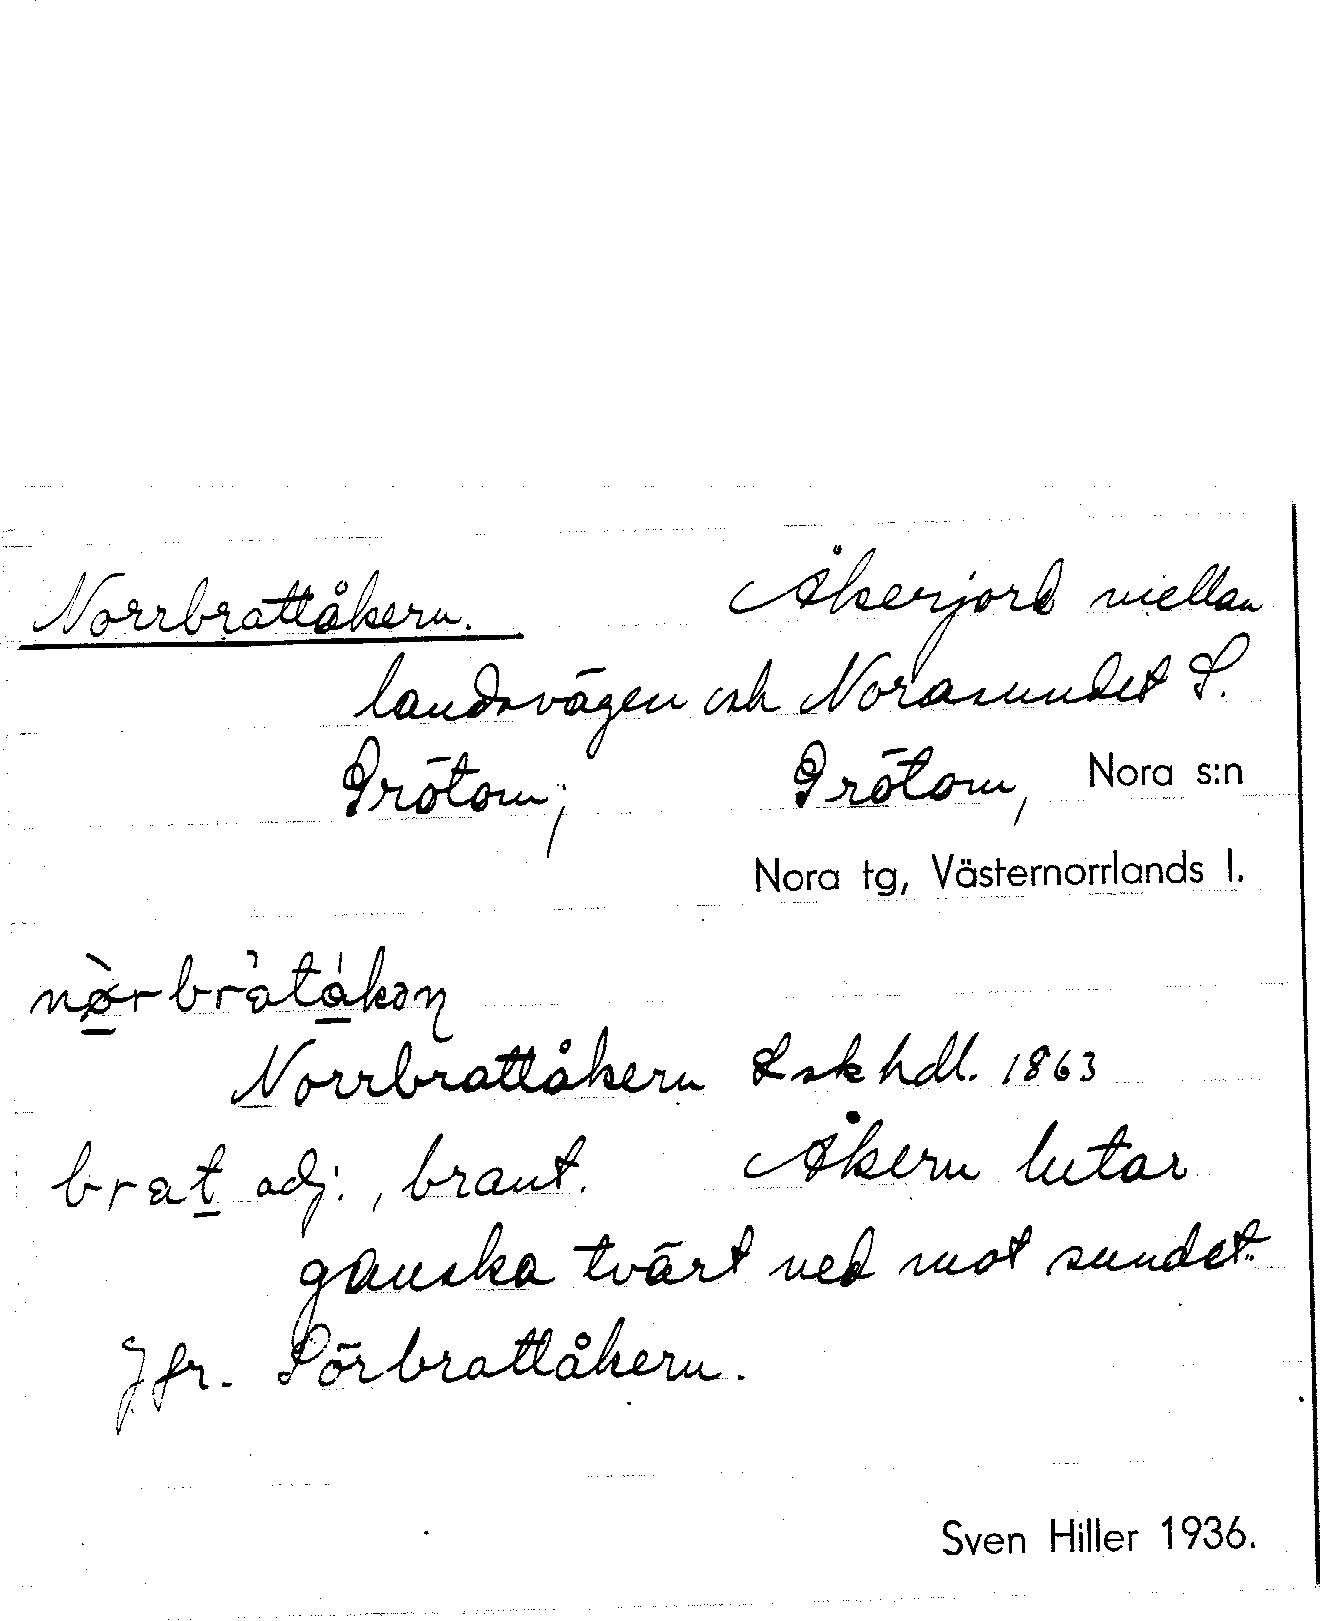 Norrbrattåkern. Åkerjord mellan
landsvägen och Norasundet S.
Grötom; Grötom, Nora s:n
Nora tg, Västernorrlands l.
Norrbrattåkern Lskhdl. 1863
brat adj., brant. Åkern lutar
ganska tvärt ned mot sundet.
Jfr. Sörbrattåkern.
Sven Hiller 1936.